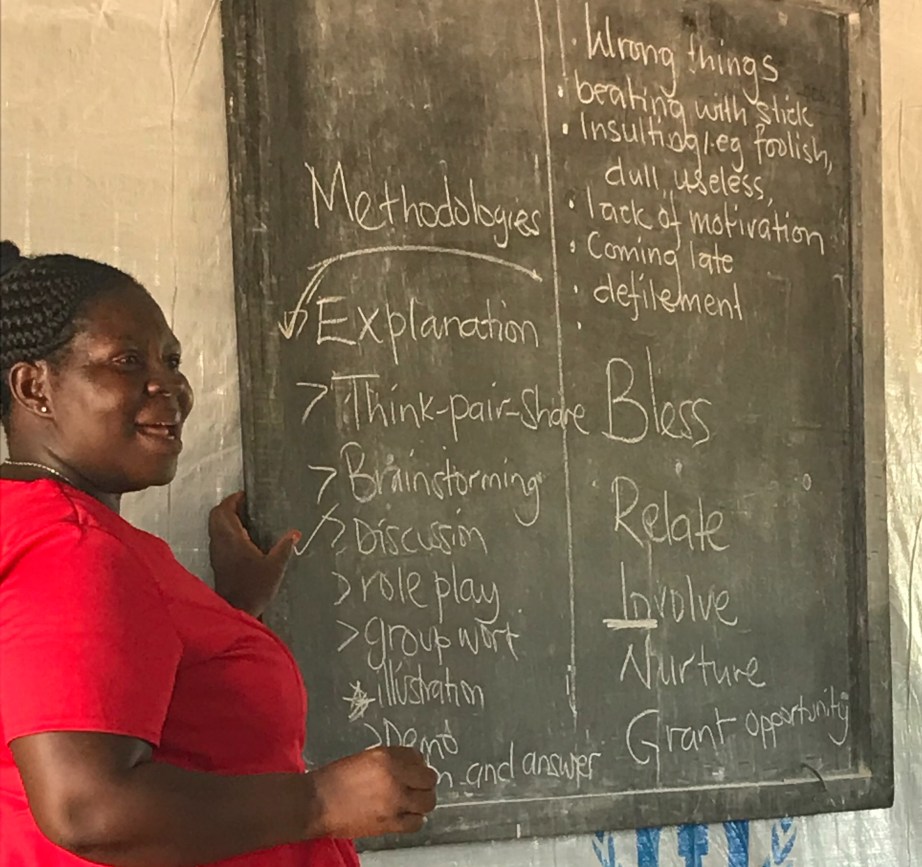 Methodologies
Explanation
Think-pair-share
Brainstorming
Discussion
role play
group work
illustration
Demo
and answer
Wrong things
beating with stick
Insulting/.eg foolish,
dull, useless,
lack of motivation
Coming late
defilement
Bless
Relate
Involve
Nurture
Grant opportunity